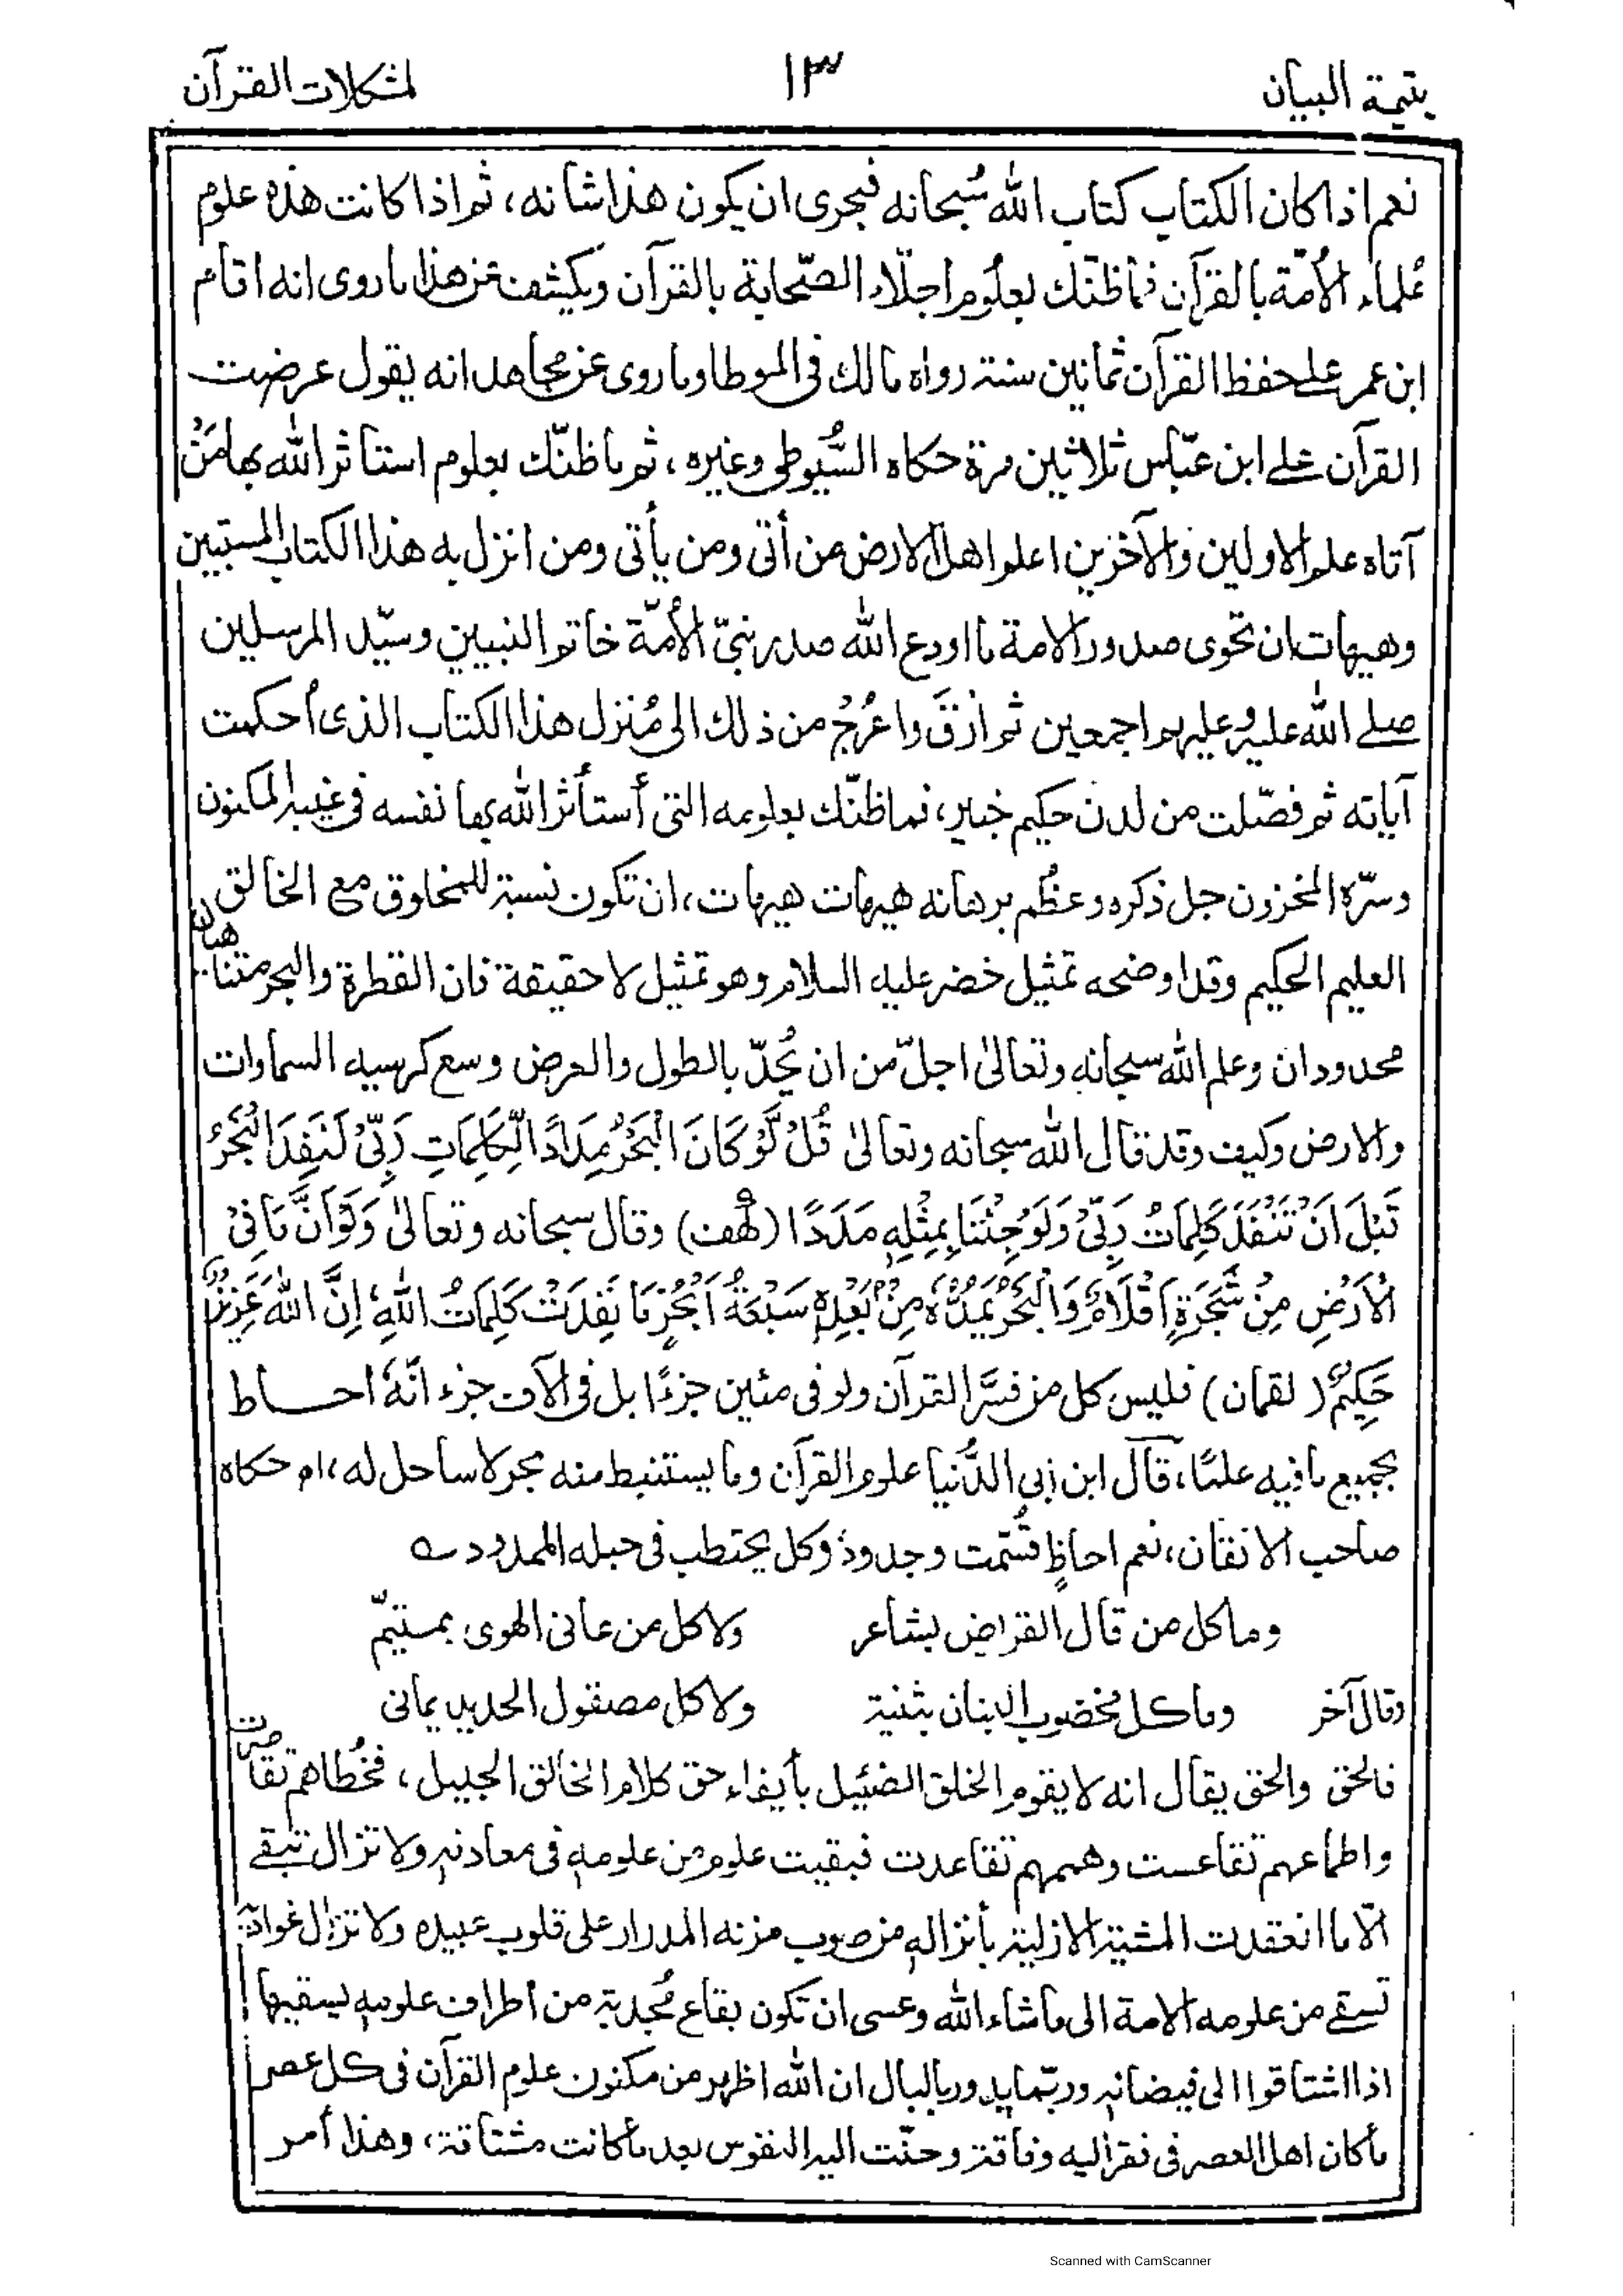 يتيمة البيان
١٣
لمشكلات القرآن
نعم اذا كان الكتاب كتاب الله سُبحانه فبحرى ان يكون هذا شانه، ثم اذا كانت هذه علوم
عُلماء الأمّة بالقرآن فماظنّك بعلُوم اجلّاء الصّحابة بالقرآن ويكشف عن هذا ما روى انه اقام
ابن عمر على حفظ القرآن ثمانين سنة رواه مالك فى الموطا وما روى عن مجاهد انه يقول عرضت
القرآن على ابن عبّاس ثلاثين مرة حكاه السُّيوطى وغيره، ثم ماظنّك بعلوم استاثر الله بها مَنْ
آتاه علم الاولين والآخرين اعلم اهل الارض من أتى ومن يأتى ومن انزل به هذا الكتاب المستبين
وهيهات ان تحوى صدور الامة ما اودع الله صدر نبىّ الأمّة خاتم النبيين وسيّد المرسلين
صلى الله عليه وعليهم اجمعين ثم ارْقَ واعْرُجْ من ذلك الى مُنزل هذا الكتاب الذى أحكمت
آياته ثم فصّلت من لدن حكيم خبير، فماظنّك بعلومه التى أستأثر الله بها نفسه فى غيبه المكنون
وسرّه المخزون جل ذكره وعظُم برهانه هيهات هيهات، ان تكون نسبة للمخلوق مع الخالق
العليم الحكيم وقد اوضحه تمثيل خضر عليه السلام وهو تمثيل لا حقيقة فان القطرة والبحر متناهيان
محدودان وعلم الله سبحانه وتعالىٰ اجلّ من ان يُحدّ بالطول والعرض وسع كرسيه السماوات
والارض وكيف وقد قال الله سبحانه وتعالىٰ قُلْ لَّوْ كَانَ الْبَحْرُ مِدَادًا لِّكَلِمَاتِ رَبِّىْ لَنَفِدَ الْبَحْرُ
قَبْلَ اَنْ تَنْفَدَ كَلِمَاتُ رَبِّىْ وَلَوْ جِئْنَا بِمِثْلِهٖ مَدَدًا (كهف) وقال سبحانه وتعالىٰ وَلَوْ اَنَّ مَا فِىْ
الْاَرْضِ مِنْ شَجَرَةٍ اَقْلَامٌ وَّالْبَحْرُ يَمُدُّهٗ مِنْ بَعْدِهٖ سَبْعَةُ اَبْحُرٍ مَا نَفِدَتْ كَلِمَاتُ اللهِ اِنَّ اللهَ عَزِيْزٌ
حَكِيْمٌ (لقمان) فليس كل من فسَّر القرآن ولو فى مئين جزءًا بل فى الآف جزء انّهٗ احـــاط
بجميع مافيه علمًا، قال ابن ابى الدُّنيا علوم القرآن وما يستنبط منه بحر لا ساحل له، اه حكاه
صاحب الاتقان، نعم احاظٍ قُسّمت وجدود وكل يحتطب فى حبله الممدود ے
وما كل من قال القراض بشاعر ولا كل من عانى الهوى بمستيمّ
وقال آخر وما كل مخضوب البنان بثنية ولا كل مصقول الحديد يمانى
فالحق والحق يقال انه لا يقوم الخلق الضئيل بأيفاء حق كلام الخالق الجليل، فخُطاهم تقاصرت
واطماعهم تقاعست وهممهم تقاعدت فبقيت علوم من علومهٖ فى معادنهٖ ولا تزال تبقى
الّا ما انعقدت المشيّة الازلية بأنزالهٖ من صوب مزنه المدرار على قلوب عبيده ولا تزال غواديه
تسقى من علومه الامة الى ماشاء الله وعسى ان تكون بقاع مُجدبة من أطراف علومهٖ يسقيها
اذا اشتاقوا الى فيضانهٖ وربّما يدور بالبال ان الله اظهر من مكنون علوم القرآن فى كل عصر
ماكان اهل العصر فى فقر اليه وفاقة وحنّت اليه النفوس بعد ماكانت مشتاقة، وهذا أمر
Scanned with CamScanner